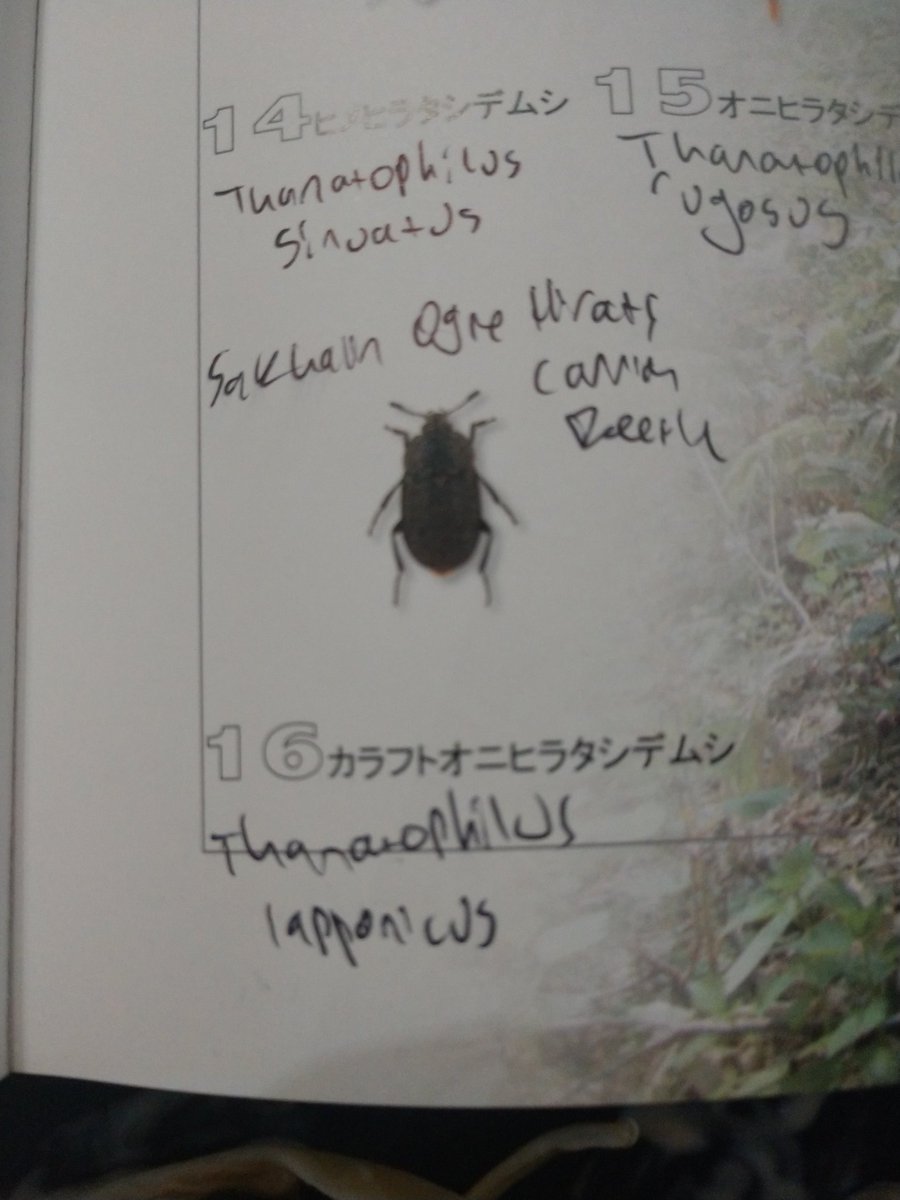 14ヒメヒラタシデムシ
Thanatophilus
sinuatus
15オニヒラタシデ
Thanatophil
rugosus
Sakhalin Ogre Hirata
Carrion
Beetle
16カラフトオニヒラタシデムシ
Thanatophilus
lapponicus